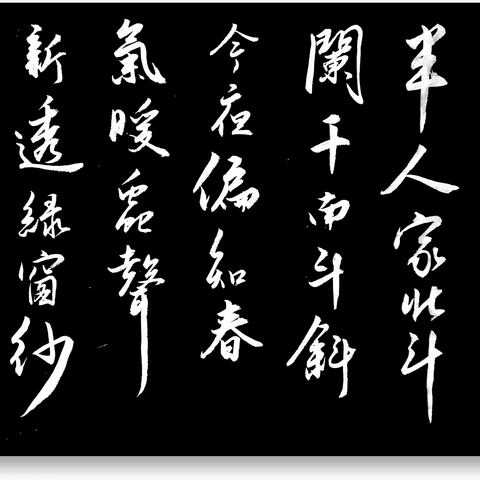 半人家北斗
闌干南斗斜
今夜偏知春
氣暖虫聲
新透綠窗紗